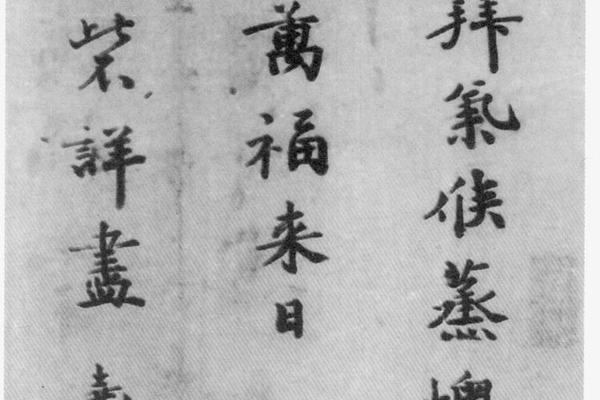 拜氣候蒸
萬福来日
詳盡